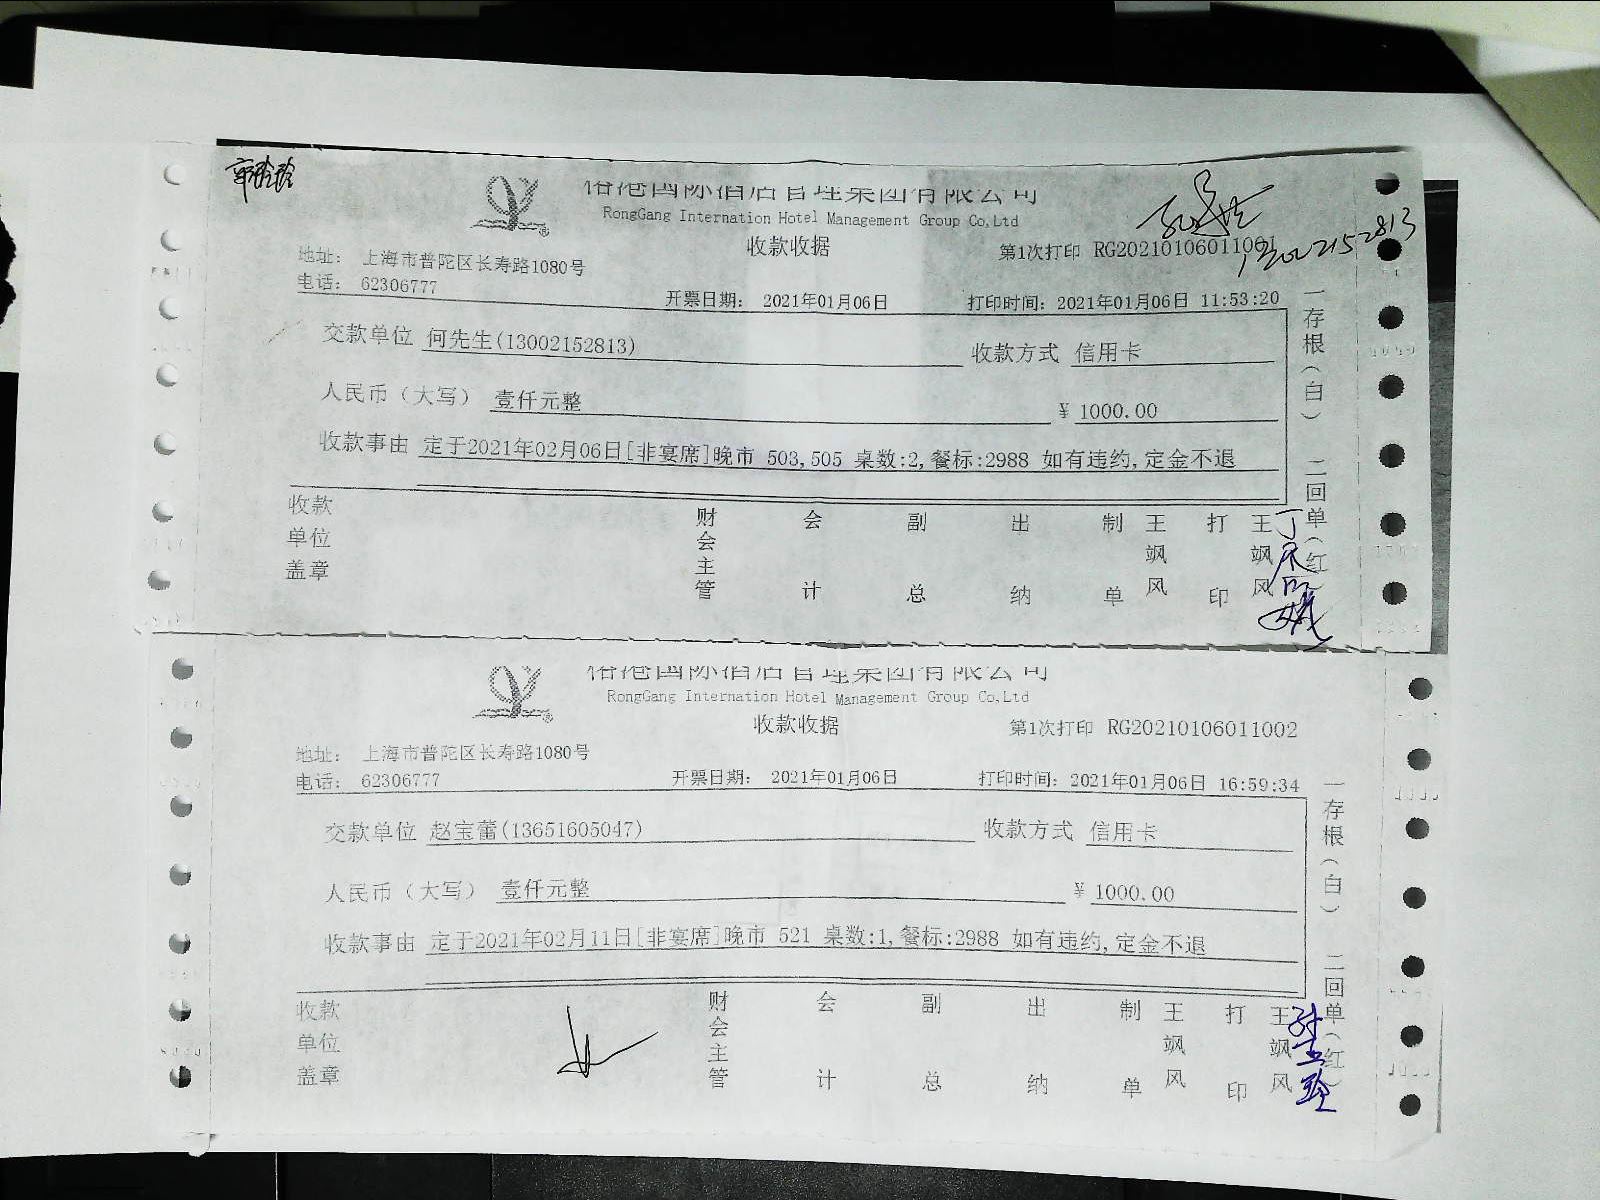 裕港国际酒店管理集团有限公司
RongGang Internation Hotel Management Group Co,Ltd
收款收据
第1次打印 RG20210106011001
13002152813
地址： 上海市普陀区长寿路1080号
电话： 62306777
开票日期： 2021年01月06日
打印时间：2021年01月06日 11:53:20
交款单位 何先生(13002152813)
收款方式 信用卡
人民币（大写） 壹仟元整
¥ 1000.00
收款事由 定于2021年02月06日[非宴席]晚市 503,505 桌数:2,餐标:2988 如有违约,定金不退
一存根（白） 二回单（红）
收款单位盖章
财会主管
会计
副总
出纳
制单
王飒风
打印
王飒风
裕港国际酒店管理集团有限公司
RongGang Internation Hotel Management Group Co,Ltd
收款收据
第1次打印 RG20210106011002
地址： 上海市普陀区长寿路1080号
电话： 62306777
开票日期： 2021年01月06日
打印时间：2021年01月06日 16:59:34
交款单位 赵宝蕾(13651605047)
收款方式 信用卡
人民币（大写） 壹仟元整
¥ 1000.00
收款事由 定于2021年02月11日[非宴席]晚市 521 桌数:1,餐标:2988 如有违约,定金不退
一存根（白） 二回单（红）
收款单位盖章
财会主管
会计
副总
出纳
制单
王飒风
打印
王飒风